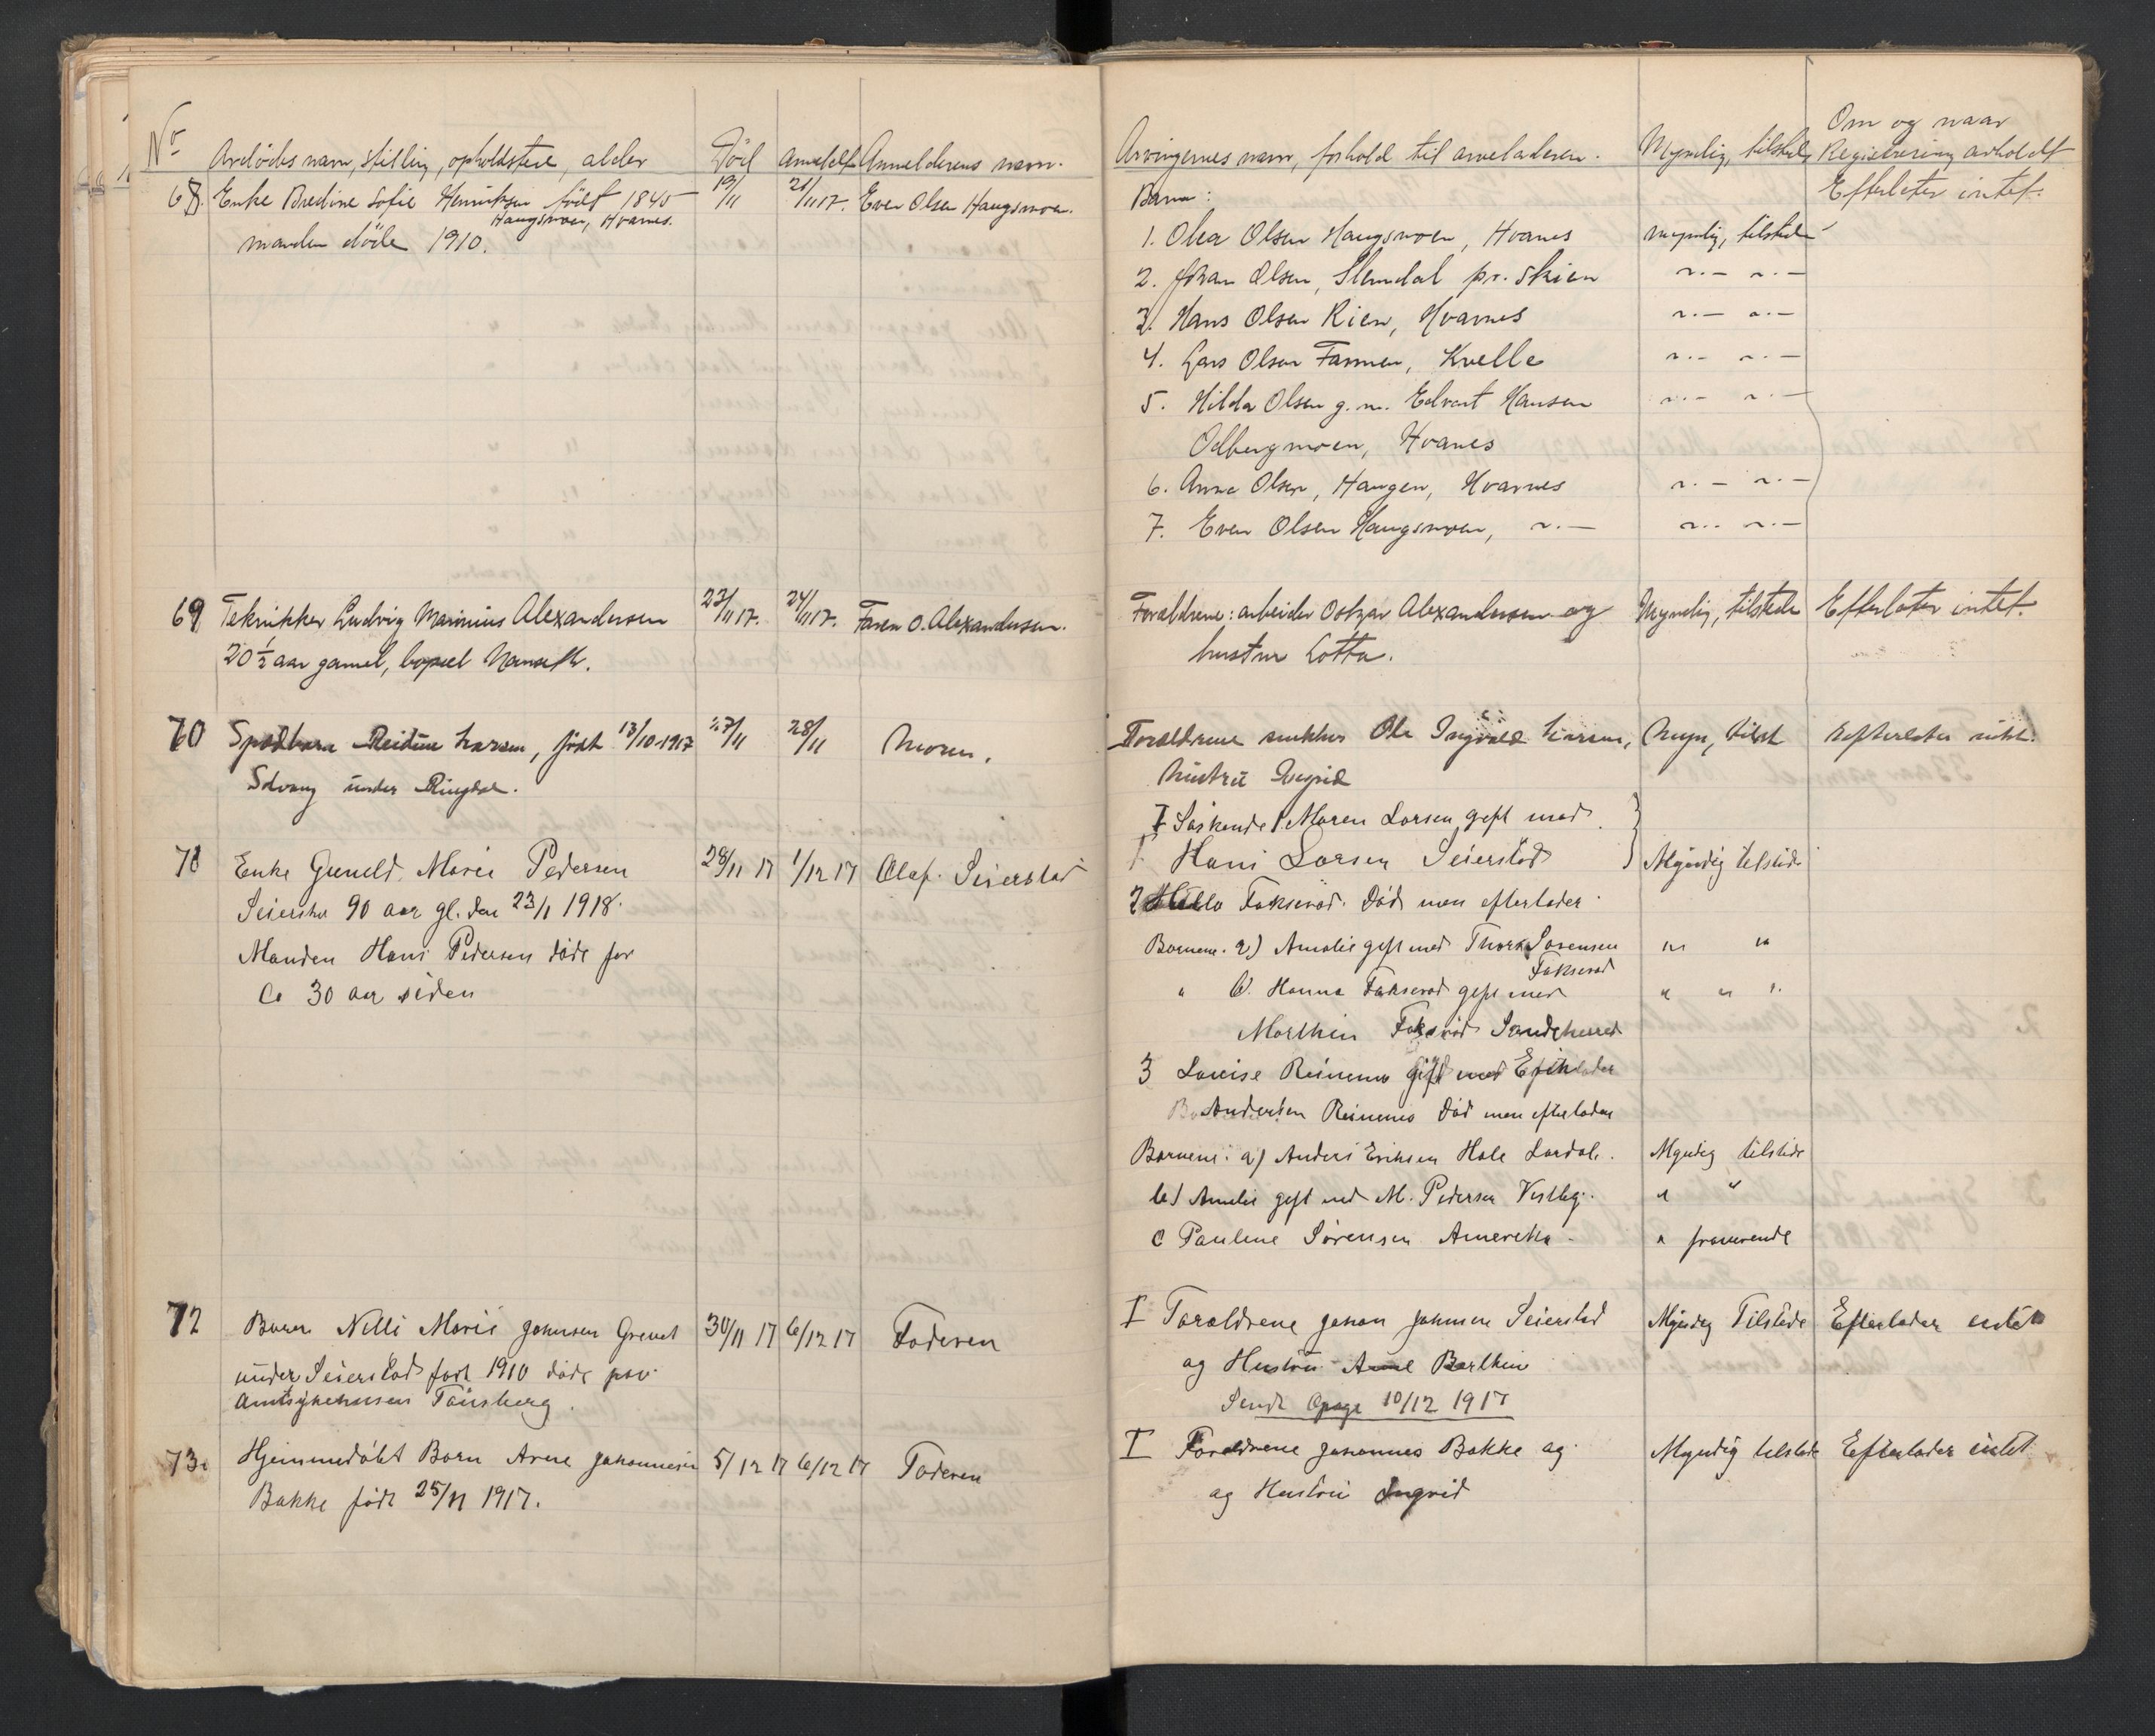 No Avdödes navn, stilling, opholdsted, alder Död anmeldt Anmelderens navn.
68. Enke Bredine Sofie Henriksen födt 1845 19/11 21/11 17. Even Olsen Haugsmoen.
Haugsmoen, Hvarnes.
manden döde 1910.
69 Teknikker Ludvig Marinius Alexandersen 23/11 17. 24/11 17. Faren O. Alexandersen.
20 1/2 aar gammel, bopæl Nanseth.
70 Spædbarn Reidun Larsen, født 13/10-1917 27/11 28/11 Moren.
Solvang under Ringdal.
71 Enke Gunild Marie Pedersen 28/11 17 1/12 17 Olaf Seierstad
Seiersta 90 aar gl. den 23/1 1918.
Manden Hans Pedersen döde for
Ca 30 aar siden
72 Barn Nilli Marie Johnsen Grenet 30/11 17 6/12 17 Faderen
under Seierstad født 1910 døde paa
Amtsykehuset Tønsberg.
73. Hjemmedøbt Barn Arne Johannesen 5/12 17 6/12 17 Faderen
Bakke født 25/11 1917.
Arvingernes navn, forhold til arveladeren. Myndig, tilstede Om og naar
Registrering avholdt
Barn: Efterlater intet.
1. Olea Olsen Haugsmoen, Hvarnes myndig, tilstede
2. Johan Olsen, Slemdal pr. Skien " - " -
3. Hans Olsen Rien, Hvarnes " - " -
4. Lars Olsen Farmen, Kvelle " - " -
5. Hilda Olsen g. m. Edvart Hansen " - " -
Odbergmoen, Hvarnes
6. Anne Olsen, Haugen, Hvarnes " - " -
7. Even Olsen Haugsmoen, " - " - " -
Forældrene: arbeider Oskar Alexandersen og Myndig, tilstede Efterlater intet.
hustru Lotta.
Forældrene snekker Ole Ingvald Larsen, Myn, tilst Efterlater intet.
hustru Ingrid
I Søskende 1 Maren Larsen gift med
Hans Larsen Seierstad Myndig tilstede
2 Fokserød. Død men efterlader
Børnene. a) Amalie gift med Thorx Sørensen " "
Fokserød
" b. Hanna Fokserød gift med " " "
Marthin Fokserød Sandeherred
3 Lovise Reinenes gift med
Andersen Reinenes Død men efterlader
Børnene: a) Anders Eriksen Hole Lardal. Myndig tilstede
b) Amelie gift med M. Pedersen Vestby. " "
c Pauline Sørensen Amerika. " fraværende
I Foraldrene Johan Johnsen Seierstad Myndig Tilstede Efterlader intet
og Hustru Anne Barthin
Sendt Opgg 10/12 1917
I Foraldrene Johannes Bakke og Myndig tilstede Efterlader intet
og Hustru Ingrid